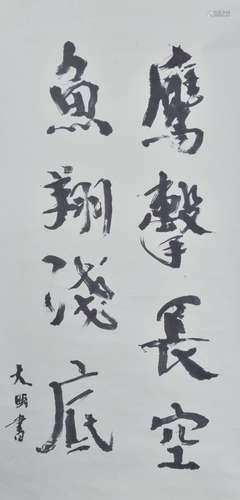 鷹擊長空
魚翔淺底
大明書